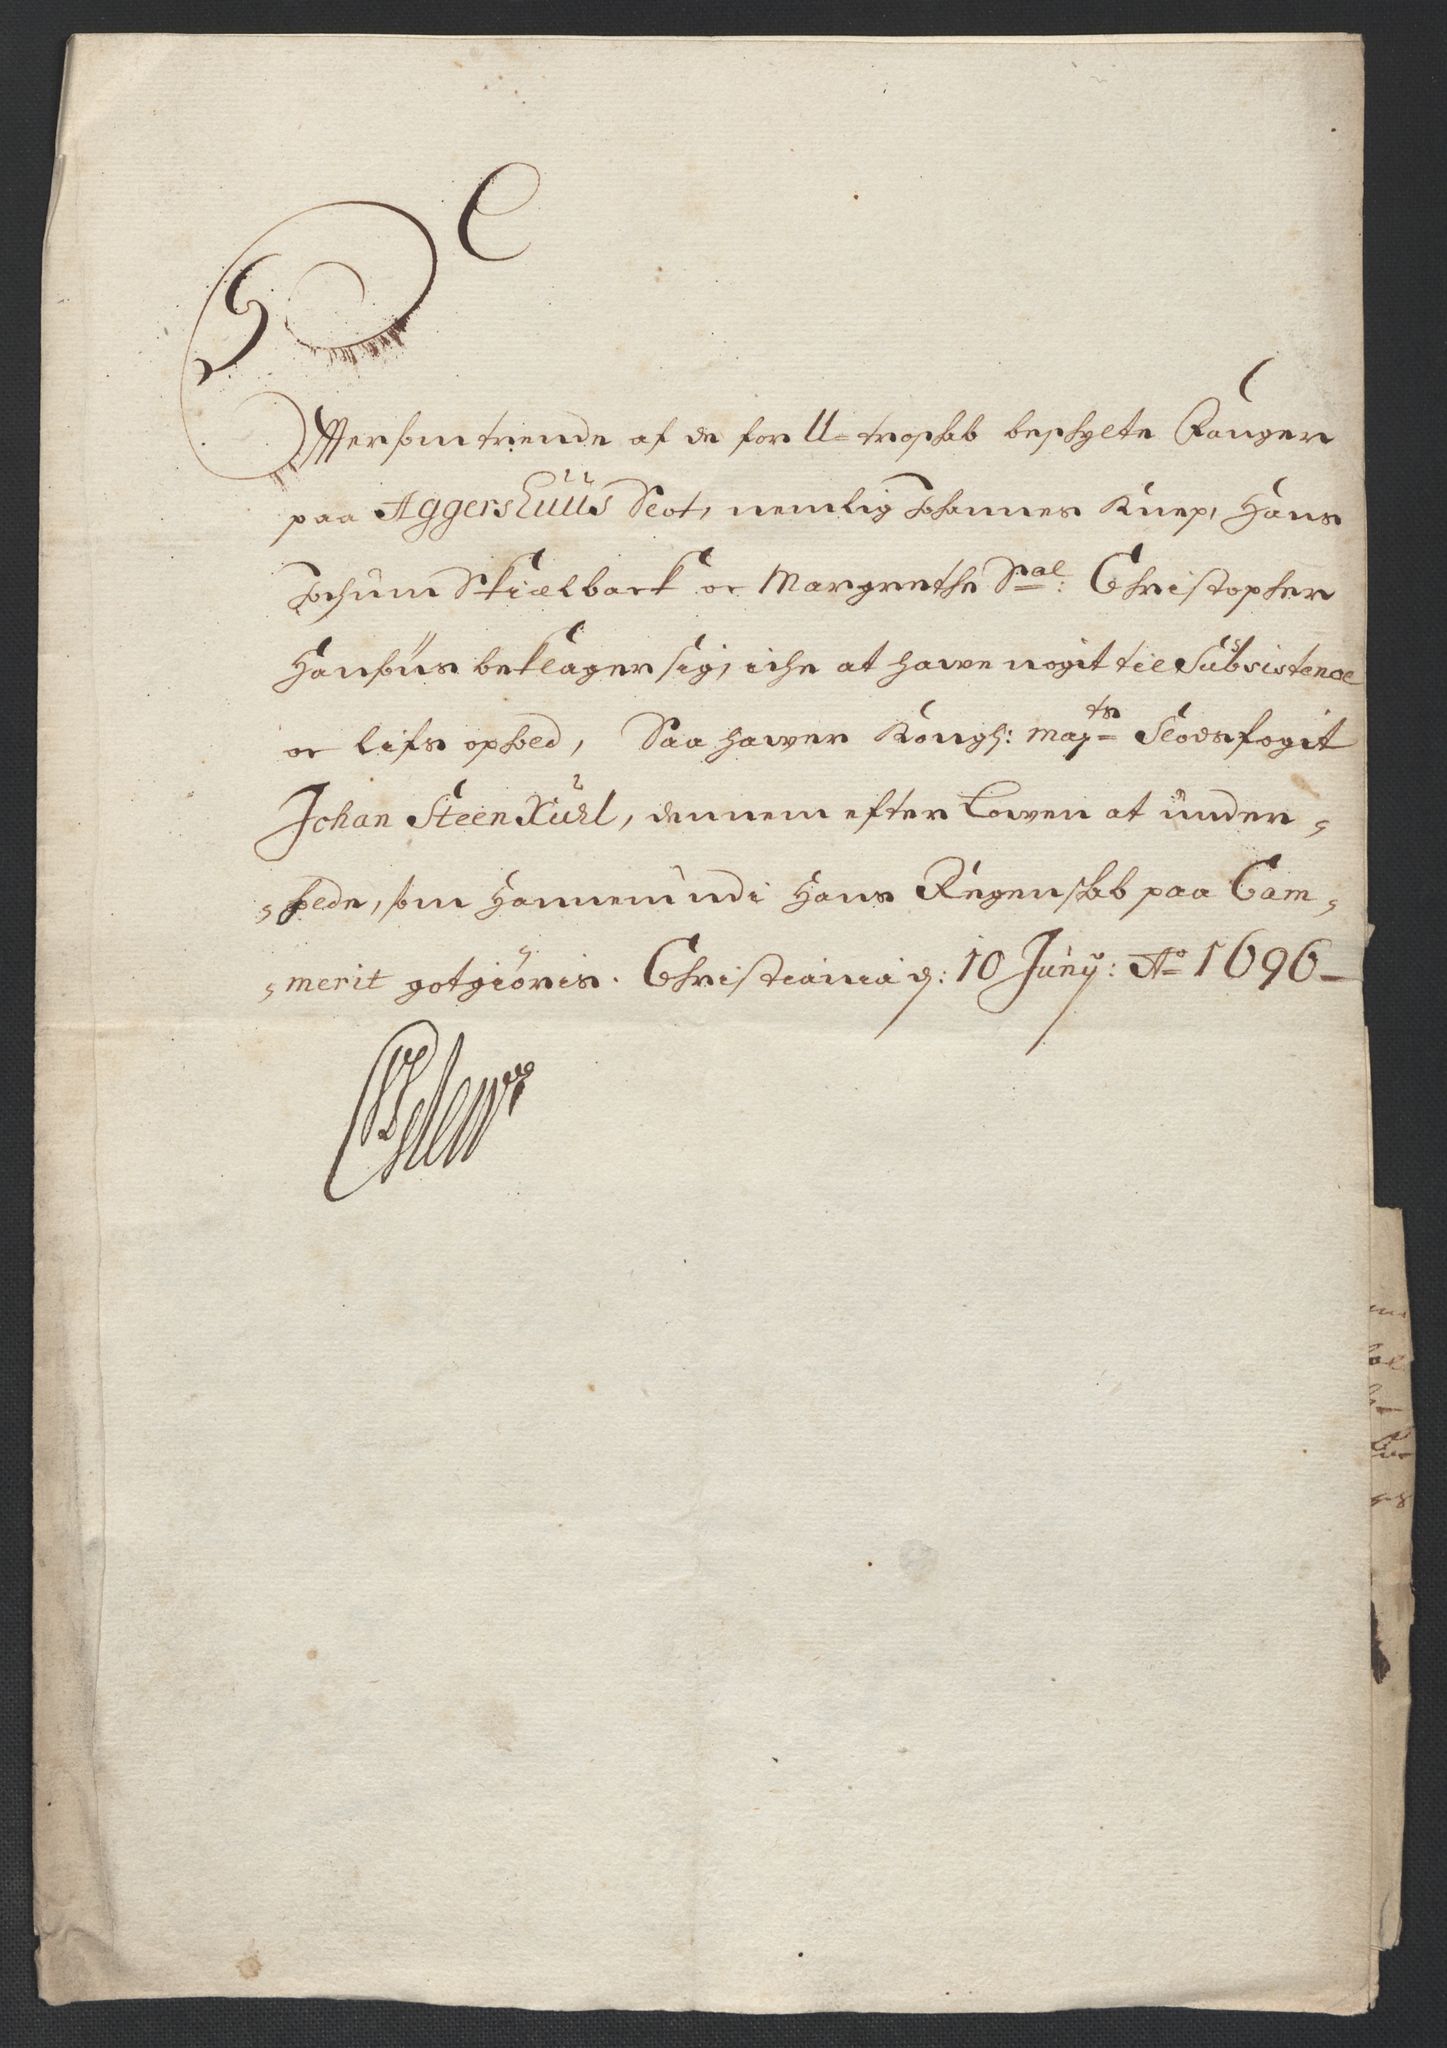 Eftersom trende af de for U-troskab beskylte Fanger
paa Aggershuus Slot, nemlig Johannes Knep, Hans
Jochum Skielback oc Margrethe Sal: Christopher
Hansøns beklager sig, iche at hawe nogit til Subsistence
oc lifs ophold, Saa hawer Kongh: mayts Slodsfogit
Johan Steen Kuhl, dennem efter Lowen at under-
-holde, som hannem udi hans Regenskab paa Cam-
-merit gotgiöris. Christiania d: 10 Juny: Ao 1696